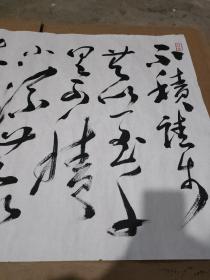 不積跬步
無以至千
里不積
小流無以